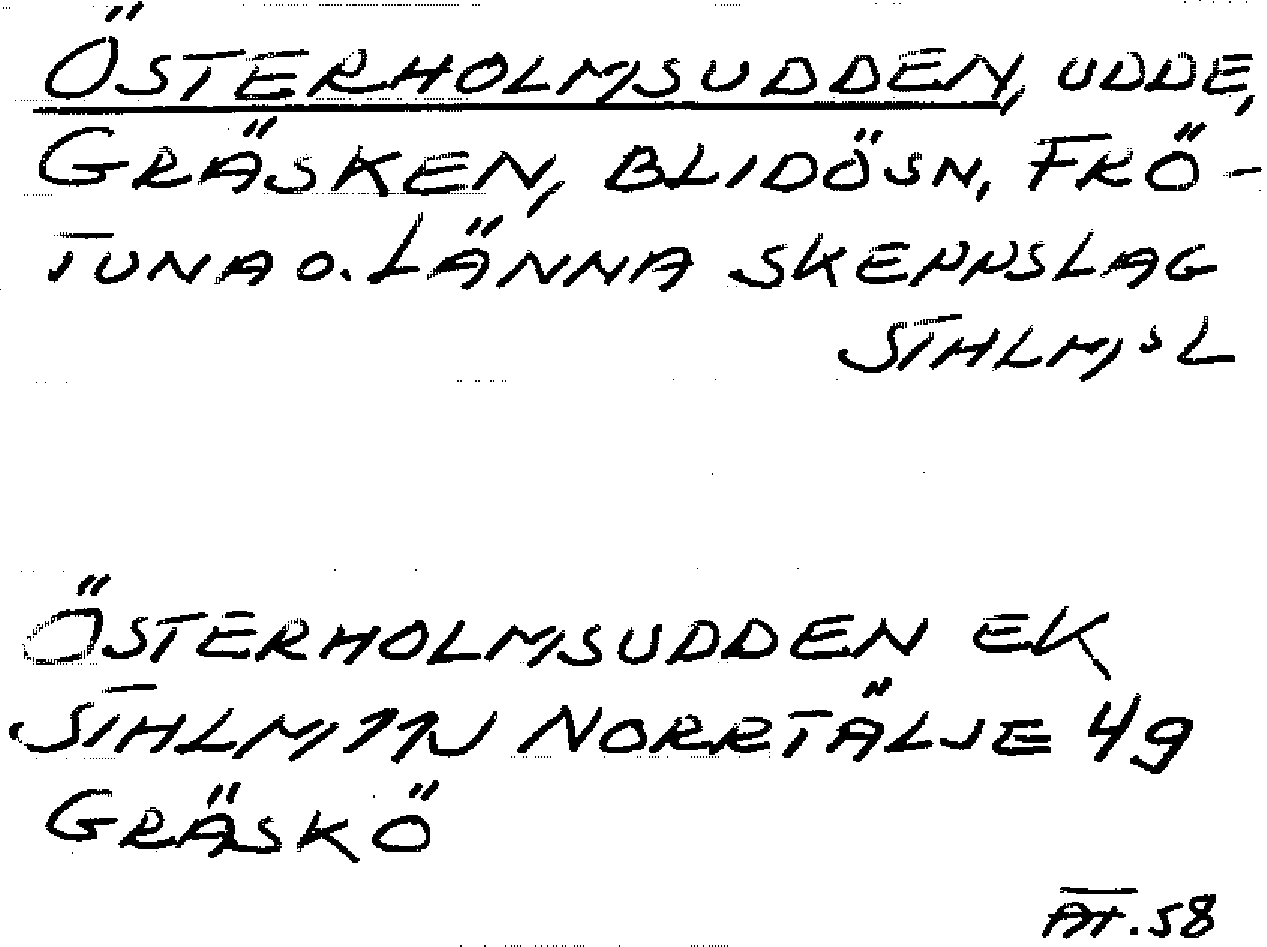 ÖSTERHOLMSUDDEN, UDDE,
GRÄSKEN, BLIDÖSN, FRÖ-
TUNA O. LÄNNA SKEPPSLAG
STHLM,SL
ÖSTERHOLMSUDDEN EK
STHLM, 11J NORRTÄLJE 4g
GRÄSKÖ
AT. 58